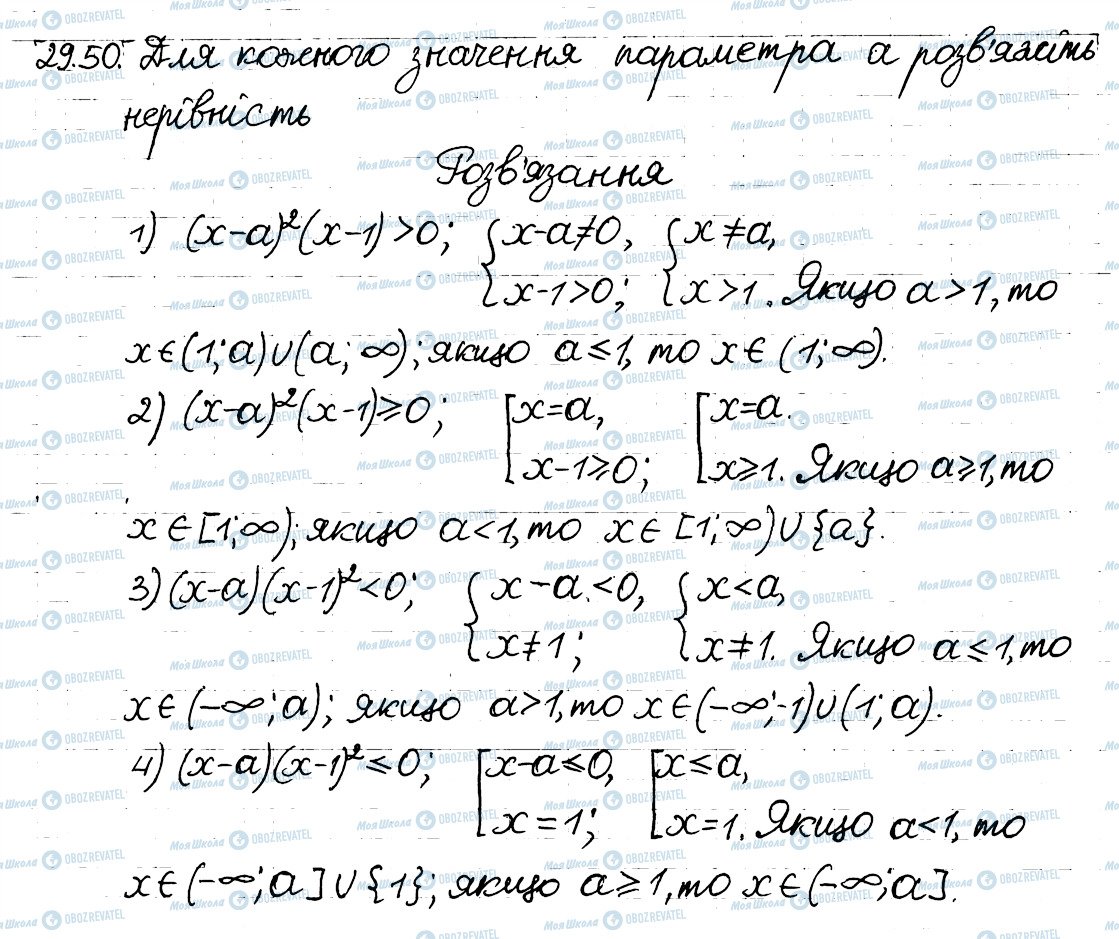 29.50. Для кожного значення параметра а розв'яжіть
нерівність
Розв'язання
1) (x-a)²(x-1)>0; { x-a≠0, { x≠a,
x-1>0; x>1. Якщо a>1, то
x∈(1;a)∪(a;∞); якщо a≤1, то x∈(1;∞).
2) (x-a)²(x-1)≥0; [ x=a, [ x=a.
x-1≥0; x≥1. Якщо a≥1, то
x∈[1;∞); якщо a<1, то x∈[1;∞)∪{a}.
3) (x-a)(x-1)²<0; { x-a<0, { x<a,
x≠1; x≠1. Якщо a≤1, то
x∈(-∞;a); якщо a>1, то x∈(-∞;-1)∪(1;a).
4) (x-a)(x-1)²≤0; [ x-a≤0, [ x≤a,
x=1; x=1. Якщо a<1, то
x∈(-∞;a]∪{1}; якщо a≥1, то x∈(-∞;a].